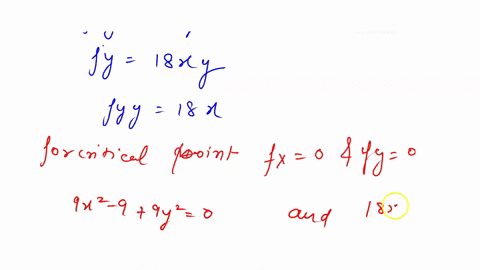 fy = 18xy
fyy = 18x
for critical point fx = 0 & fy = 0
9x² - 9 + 9y² = 0 and 18x